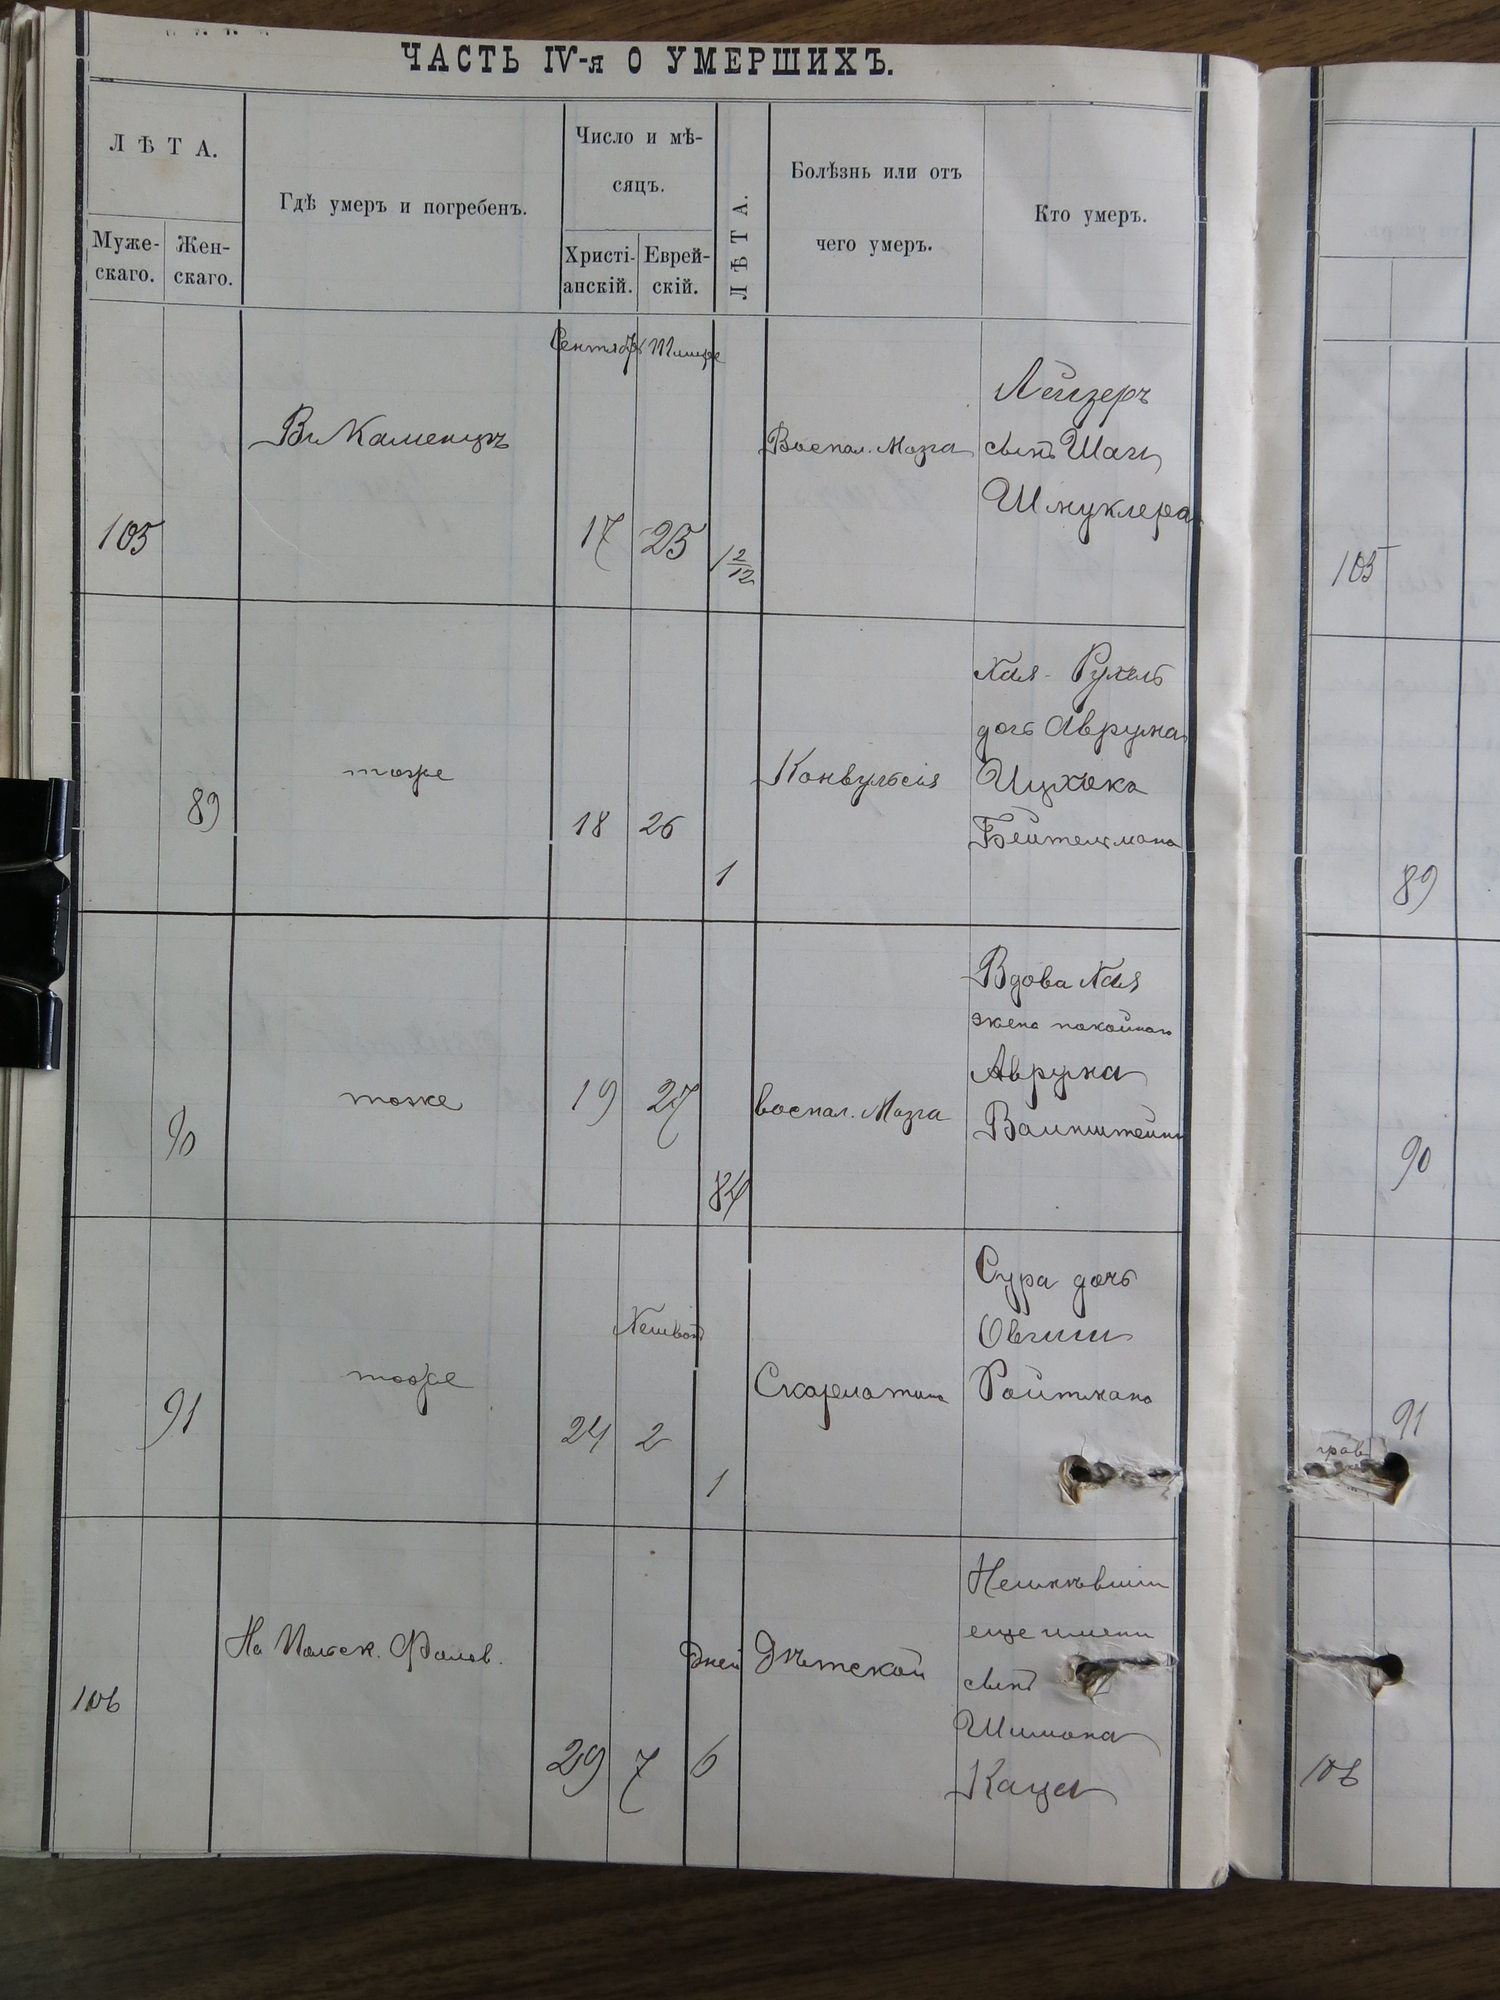 ЧАСТЬ IV-я О УМЕРШИХЪ.
ЛѢТА.
Муже-
скаго.
Жен-
скаго.
Гдѣ умеръ и погребенъ.
Число и мѣ-
сяцъ.
Христі-
анскій.
Еврей-
скій.
ЛѢТА.
Болѣзнь или отъ
чего умеръ.
Кто умеръ.
Сентябрь Тишре
105
Въ Каменцѣ
17
25
1 2/12
Воспал. Мозга
Лейзеръ
сынъ
Шмуклера
105
89
тоже
18
26
1
Конвульсія
Хая-Рухль
дочь Аврума
Ицхока
Бейтельмана
89
90
тоже
19
27
84
воспал. Мозга
Вдова Хая
жена покойнаго
Аврума
Ваинштейна
90
91
тоже
24
Хешвон
2
1
Скарлатина
Сура дочь
Овшии
Ройтмана
91
106
На Польск. Фольв.
29
7
Дней
6
Дѣтской
Неимѣвшій
еще имени
сынъ
Шимона
Каца
106